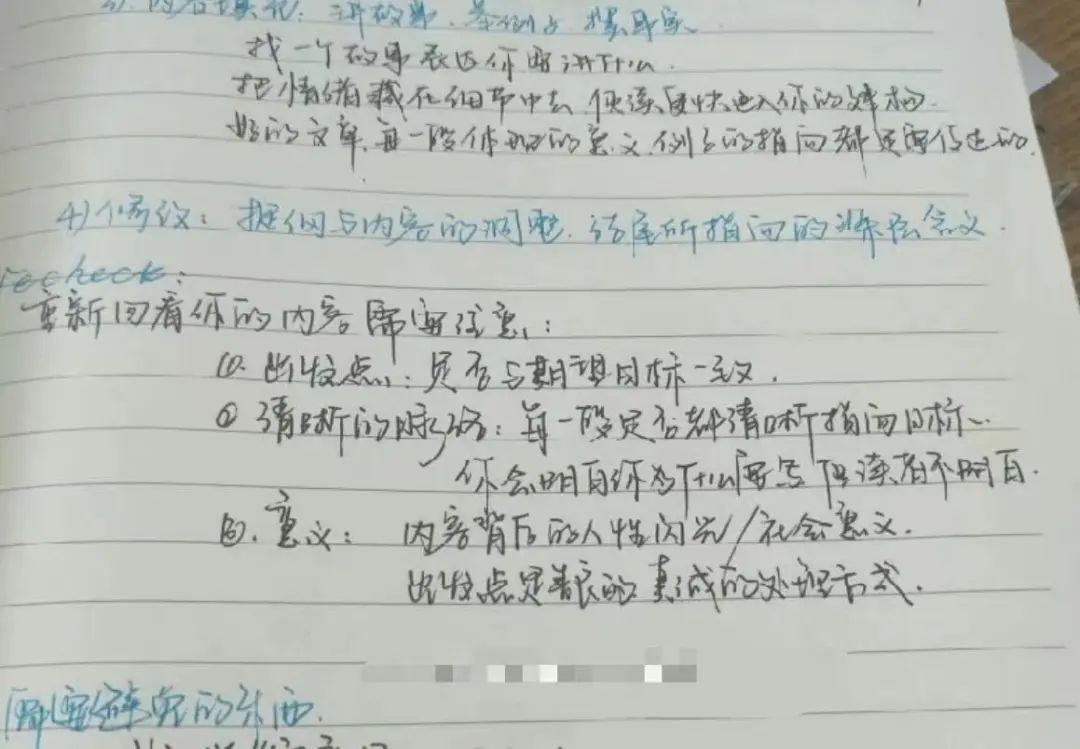 3) 内容填充：讲故事、举例子、摆事实
找一个故事表达你要讲什么.
把情绪藏在细节中去,使读者快进入你的结构.
好的文章,每一段体现的意义,例子的指向都是要传达的.
4) 修改：提纲与内容的调整,结尾所指向的深层含义.
recheck:
重新回看你的内容需要注意:
①. 出发点：是否与期望目标一致.
② 清晰的脉络：每一段是否都清晰指向目标.
你会明白你为什么要写,但读者不明白.
③. 意义：内容背后的人性闪光/社会意义.
出发点是善良的,真诚的处理方式.
需要避免的东西.